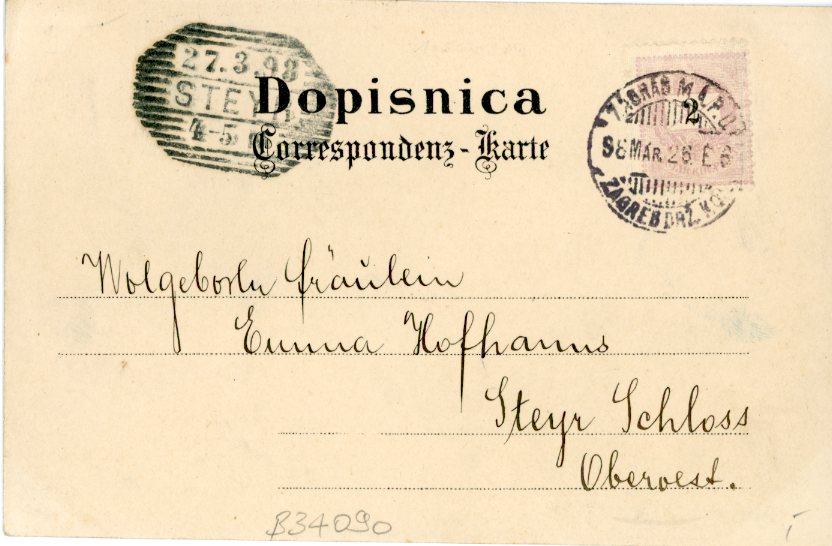 27.3.98
STEYR
4-5
Dopisnica
Correspondenz-Karte
2
ZAGRAB M.A.P.U.
S8 MAR 26 E 6
ZAGREB DRZ. KO
Wolgeborln Fräulein
Emma Hofhanns
Steyr Schloss
Oberoest.
B34090